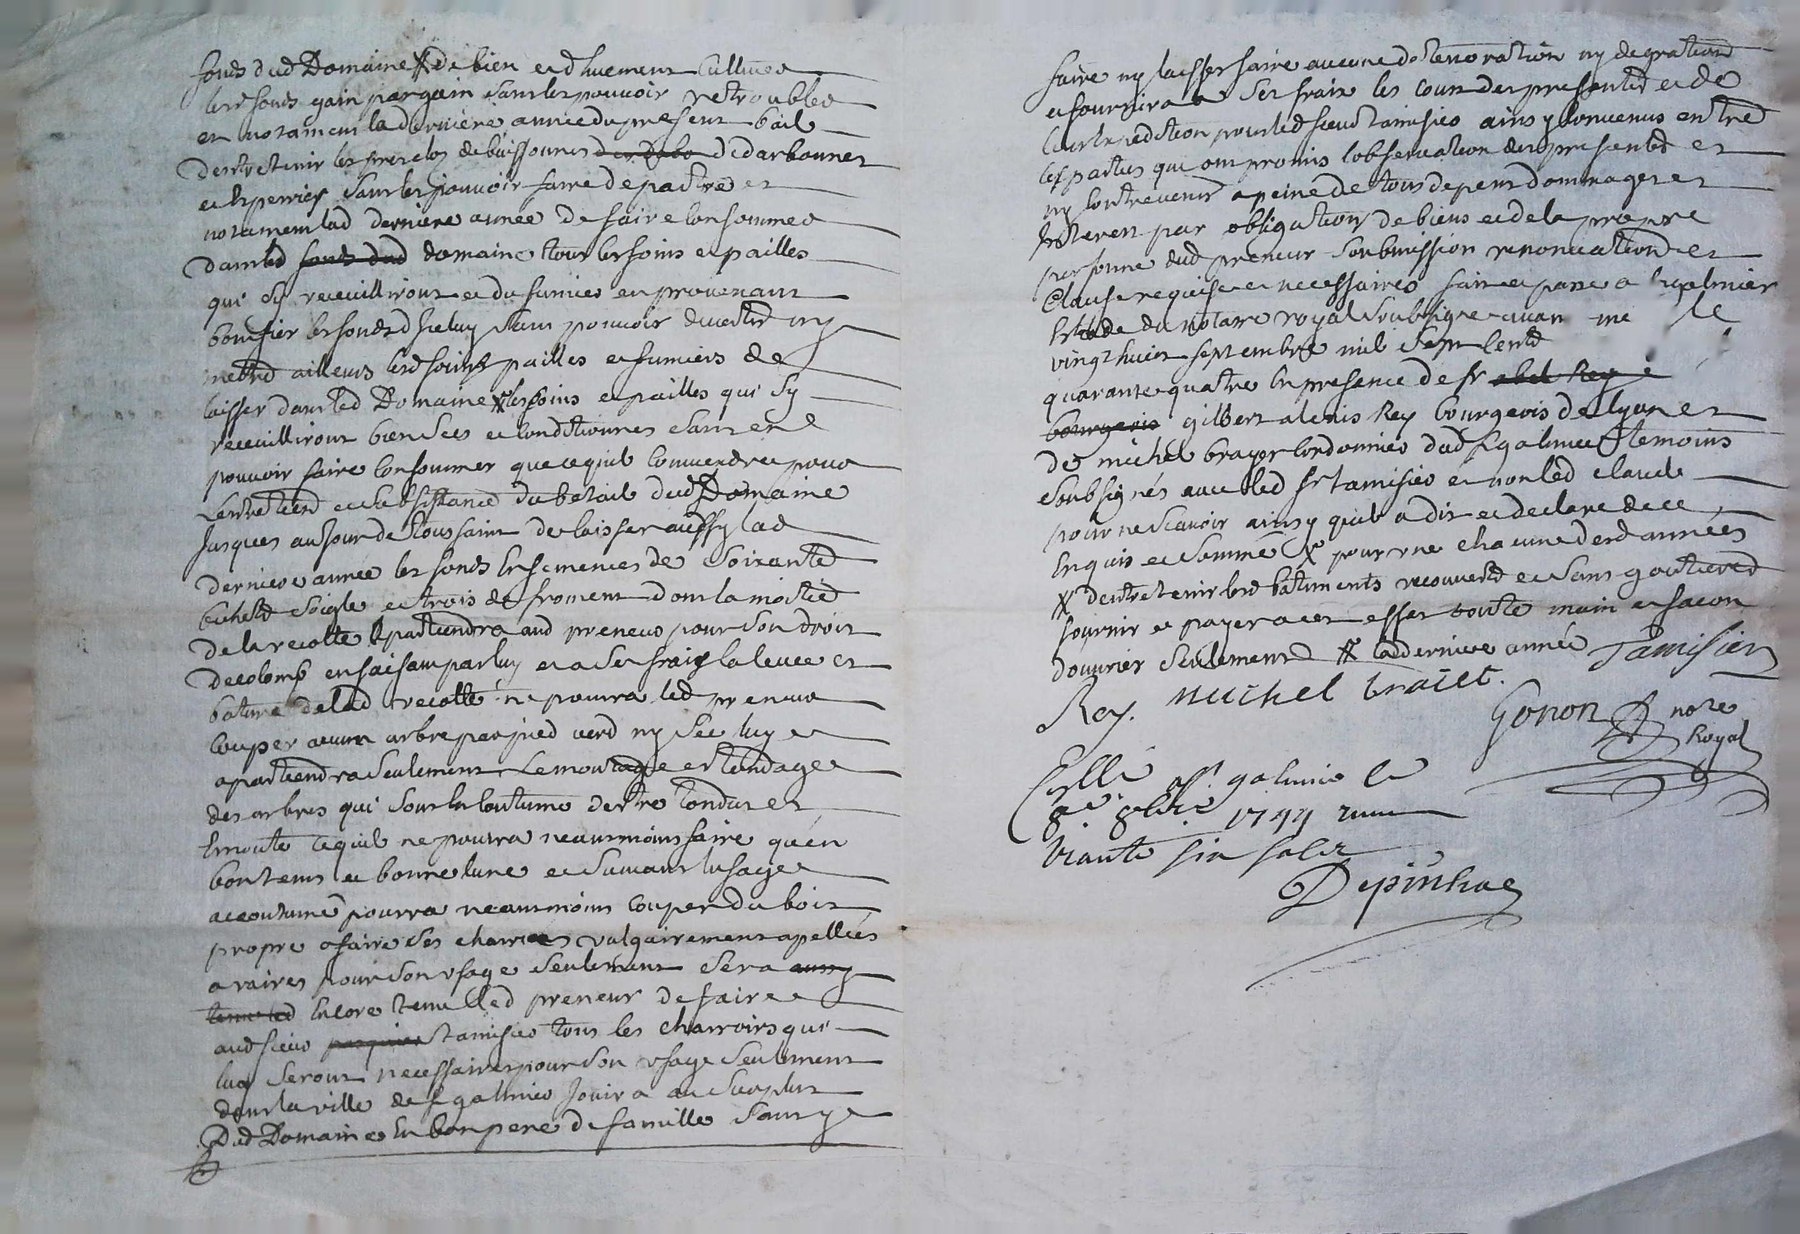 fonds dud Domaine * de bien et dhuement Cultiver
lesd fonds gain par gain sans les pouvoir retroubler
et notament la derniere année du present bail
dentretenir les prez clos de buissonnes des Debo d'Edarbonner
et espierrer sans les pouvoir faire depaitre et
notament lad derniere année de faire Consommer
dans led fonds dud domaine tous les foins et pailles
qui sy receuilliront et du fumier en provenant
boniffier les fonds d'Iceluy sans pouvoir divertir ny
mettre ailleurs lesd foins pailles et fumiers de
laisser dans led Domaine * les foins et pailles qui sy
receuilliront bien secs et Conditionnes sans en
pouvoir faire Consommer que ce quil Conviendra pour
Lentretient et subsistance du betail dud Domaine
Jusques au Jour de Toussaint de laisser aussy lad
derniere année les fonds Ensemences de soixante
bichets soigle et trois de froment dont la moitié
de la recolte apartiendra aud preneur pour son droit
de colomp en faisant par luy et a ses frais la levee et
bature de lad recolte ne pourra led preneur
Couper aucun arbre par pied verd ny sec luy
apartiendra seulement Lemontage et tondage
des arbres qui sont En Coutume destre tondus et
Emonte ce quil ne pourra neanmoins faire quen
bon tems et bonne lune et suivant lusage
accoutumé pourra neanmoins Couper du bois
propre a faire ses charrues vulgairement apellées
araires pour son usage seulement sera aussy
tenu led Encore tenu led preneur de faire
aud sieur Tamisier tous les charroirs qui
luy seront necessaires pour son usage seulement
dans la ville de st galmier Jouira au surplus
Dud Domaine En bon pere de famille sans y
faire ny laisser faire aucune deterioration ny degration
et fournira a ses frais les cour des presentes et de
leur reddition pour led sieur tamisier ainsy Convenus entre
les parties qui ont promis lobservation des presentes et
ny Contrevenir a peine de tous depens dommages et
Interest par obligation de biens et de la propre
personne dud preneur soubmission renonciation et
Clause requise et necessaires fait et passé a st galmier
Etude du notaire royal soubsigné avan me le
vingt huit septembre mil sept Cents
quarante quatre En presence de sr abel Rey
bourgeois gilbert alexis Rey bourgeois de lyon et
de michel brayer Cordonnier dud st galmier temoins
soubsignés avec led sr tamisier et non led claude
pour ne scavoir ainsy quil a dit et declaré de ce
Enquis et sommé * pour une chacune desd années
* dentretenir lesd batiments recouverts et sans goutieres
fournir et payer a cet effet toute main et facon
douvrier seulement * lad derniere année Tamisier
Rey. Michel braiet.
Gonon nore
Royal
Collé a st galmier le
8e 8bre 1744 recu
trante six sols
Depinhac